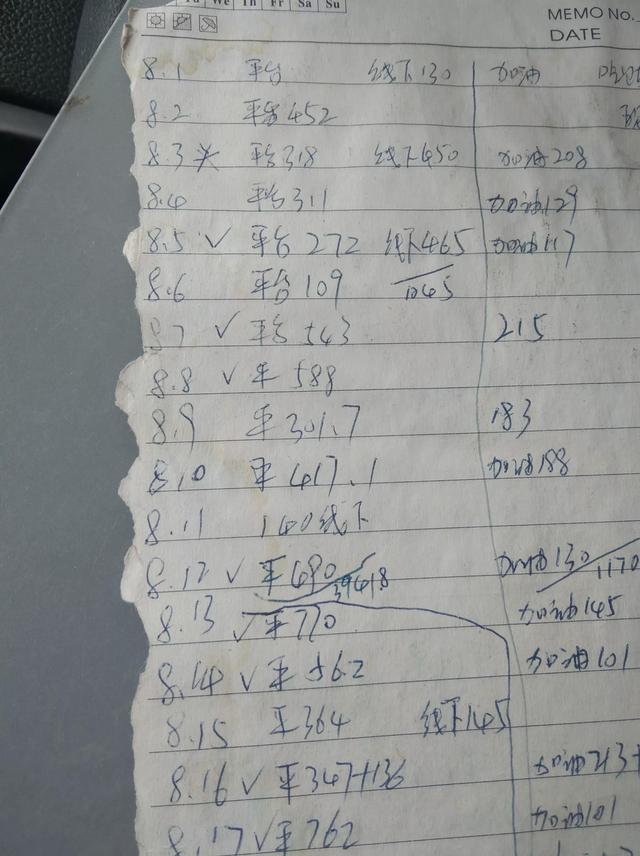 We Th Fr Sa Su
MEMO No.
DATE
8.1 平台 线下130 加油
8.2 平台452
8.3 平台318 线下450 加油208
8.4 平台311 加油129
8.5 ✓ 平台 272 线下465 加油117
8.6 平台109 1045
8.7 ✓ 平台 543 215
8.8 ✓ 平 588
8.9 平301.7 183
8.10 平417.1 加油188
8.11 140线下
8.12 ✓ 平690 加油130
1170
8.13 ✓平770 加油145
8.14 ✓平562 加油101
8.15 平364 线下145
8.16 ✓平347+136 加油213+
8.17 ✓平762 加油101